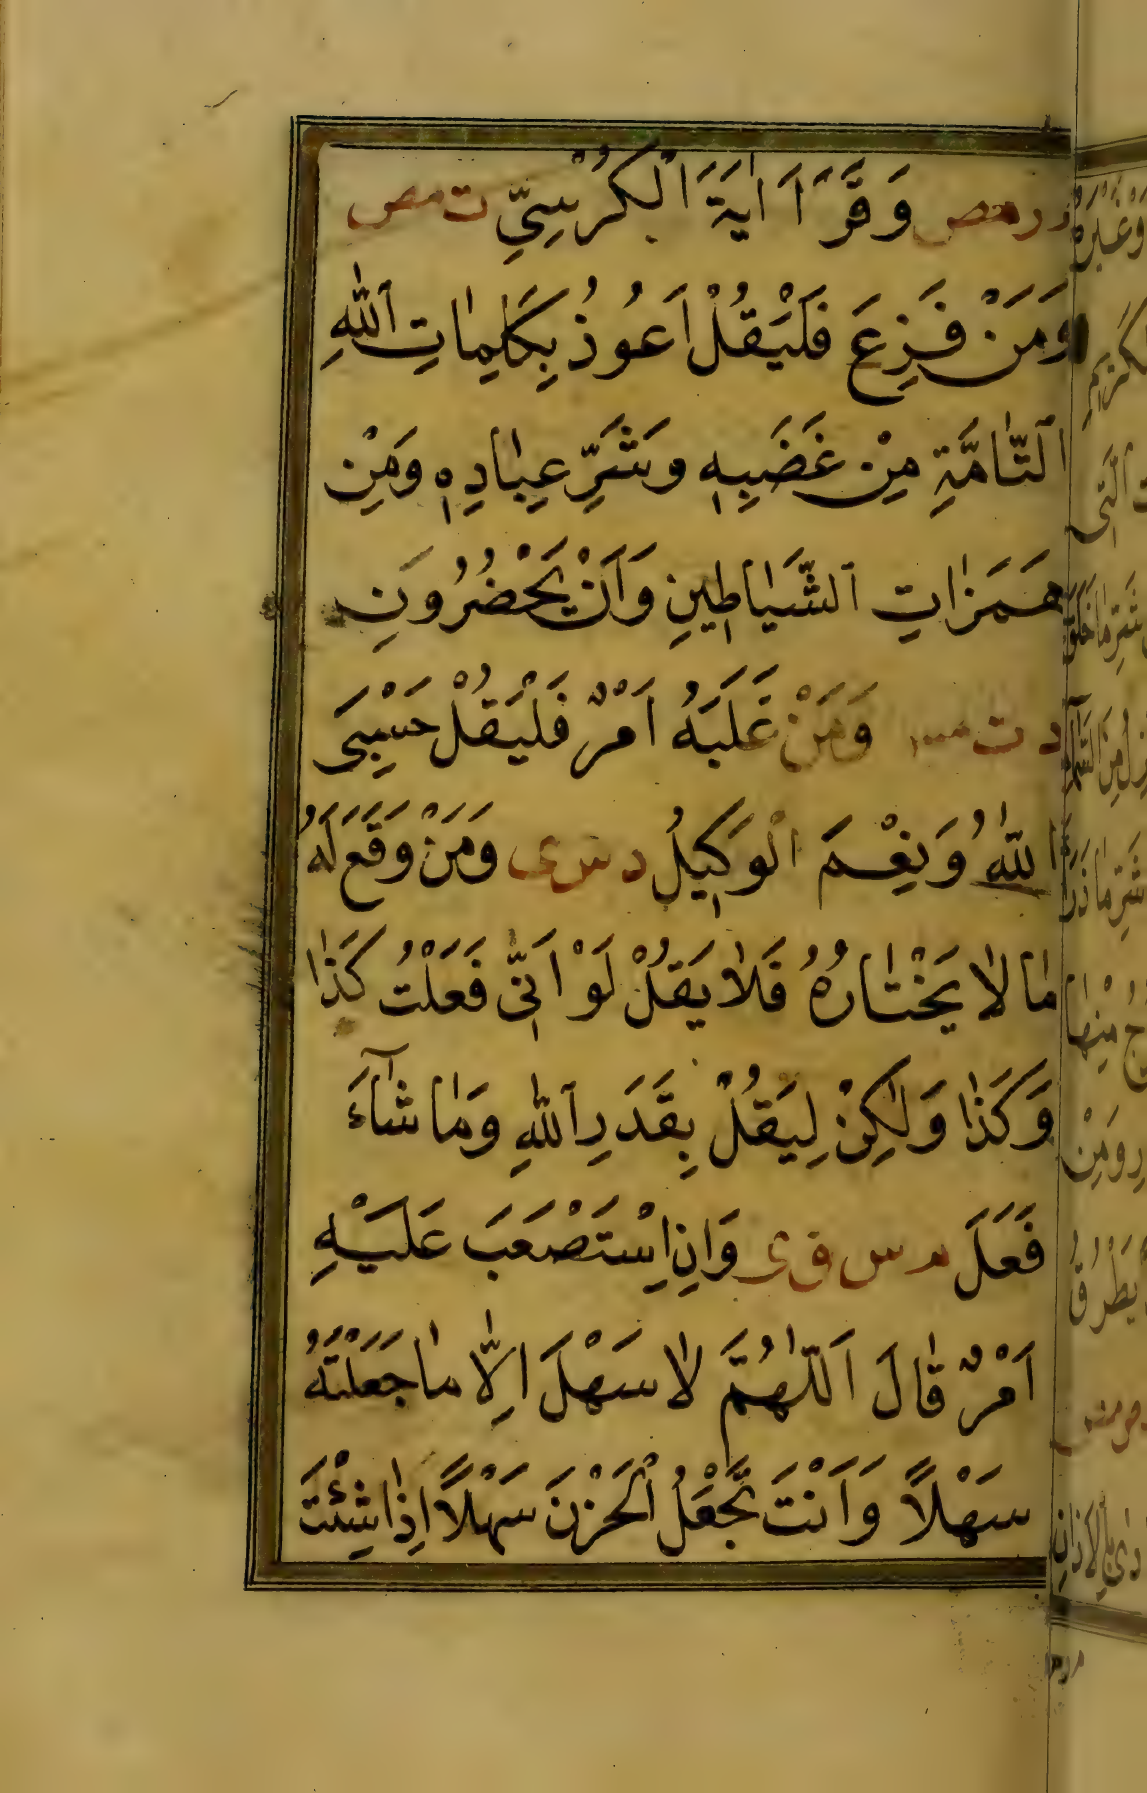 ر مص وَقَرَأَ اٰيَةَ الْكُرْسِيِّ ت مص
وَمَنْ فَزِعَ فَلْيَقُلْ اَعُوذُ بِكَلِمَاتِ اللّٰهِ
التَّامَّةِ مِنْ غَضَبِهٖ وَشَرِّ عِبَادِهٖ وَمِنْ
هَمَزَاتِ الشَّيَاطِينِ وَاَنْ يَحْضُرُونِ
د ت س وَمَنْ غَلَبَهُ اَمْرٌ فَلْيَقُلْ حَسْبِيَ
اللّٰهُ وَنِعْمَ الْوَكِيلُ د س ى وَمَنْ وَقَعَ لَهُ
مَا لَا يَخْتَارُهُ فَلَا يَقُلْ لَوْ اَنِّي فَعَلْتُ كَذَا
وَكَذَا وَلٰكِنْ لِيَقُلْ بِقَدَرِ اللّٰهِ وَمَا شَآءَ
فَعَلَ م س ق ى وَاِنِ اسْتَصْعَبَ عَلَيْهِ
اَمْرٌ قَالَ اَللّٰهُمَّ لَا سَهْلَ اِلَّا مَا جَعَلْتَهُ
سَهْلًا وَاَنْتَ تَجْعَلُ الْحَزْنَ سَهْلًا اِذَا شِئْتَ